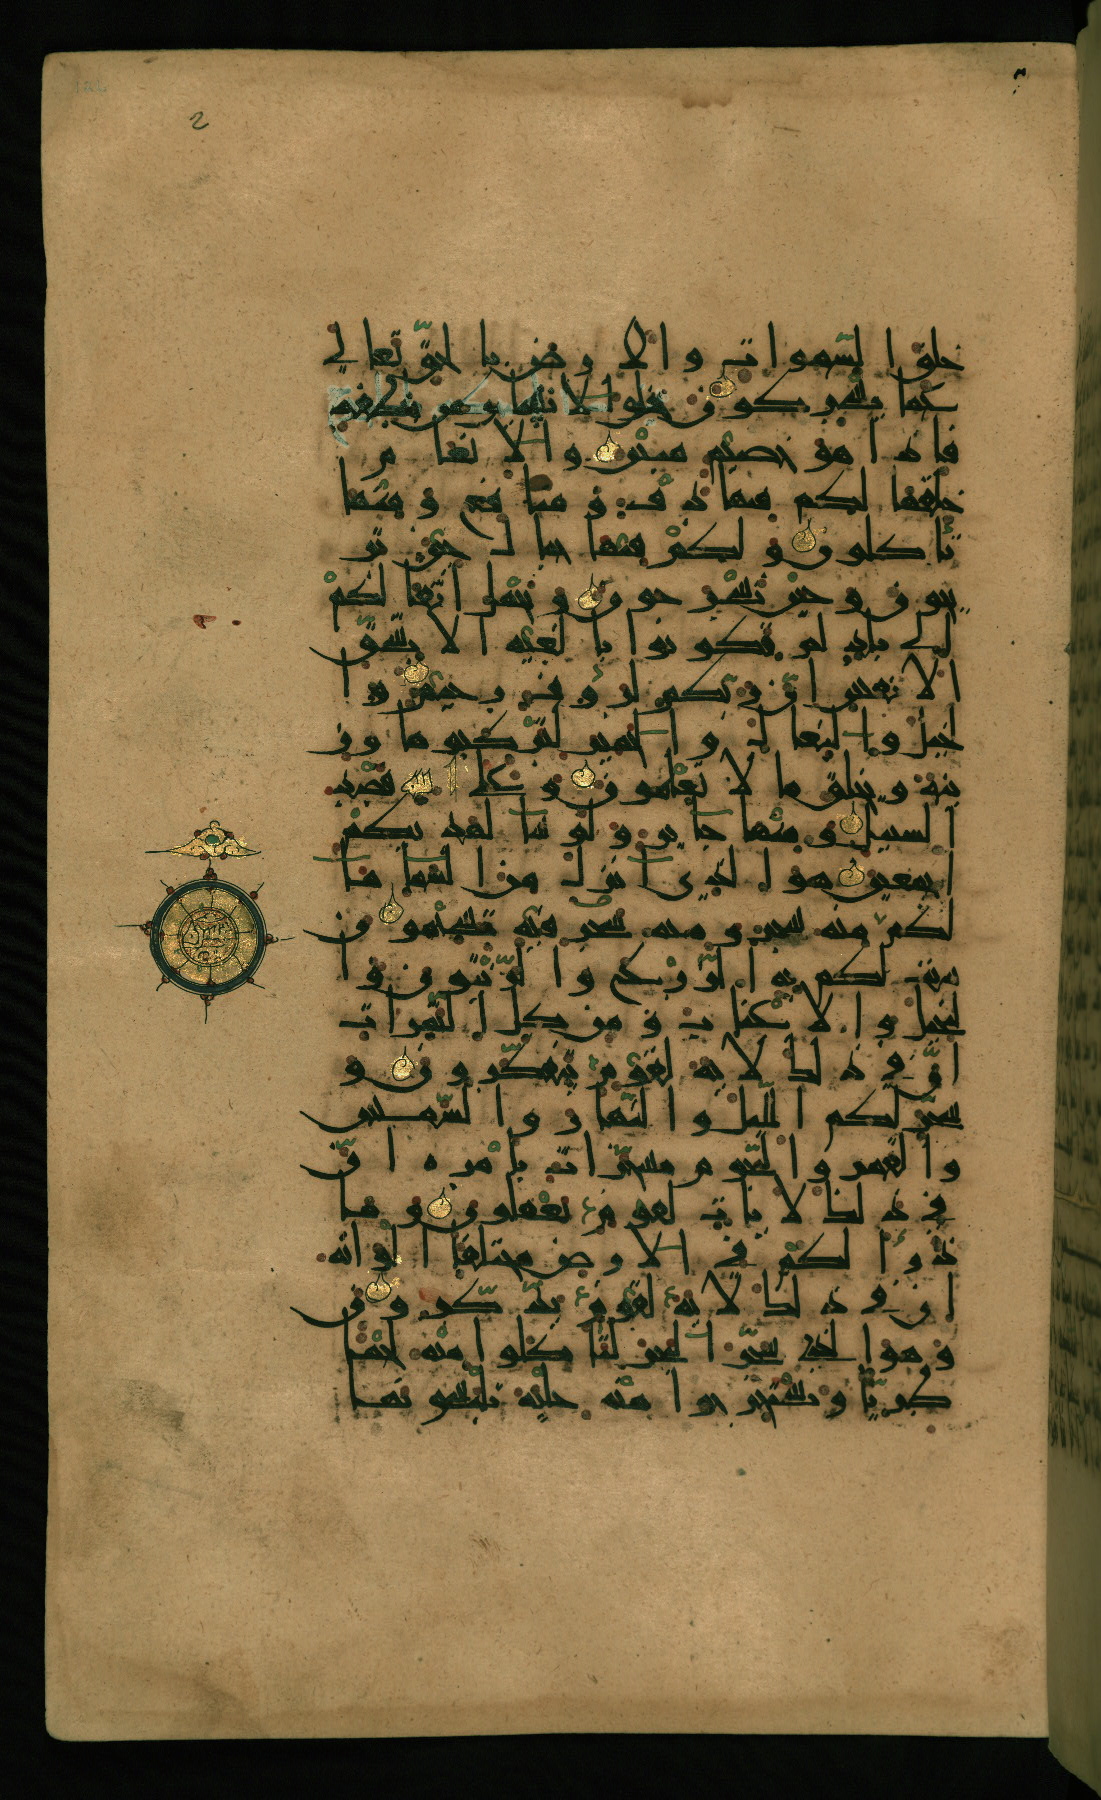 خلق السموات والارض بالحق تعالى
عما يشركون خلق الانسان من نطفة
فاذا هو خصيم مبين والانعام
خلقها لكم فيها دفء ومنافع ومنها
تأكلون ولكم فيها جمال حين تر
يحون وحين تسرحون وتحمل اثقالكم
الى بلد لم تكونوا بالغيه الا بشق
الانفس ان ربكم لرؤف رحيم وا
لخيل والبغال والحمير لتركبوها وز
ينة ويخلق ما لا تعلمون وعلى الله قصد
السبيل ومنها جائر ولو شاء لهديكم
اجمعين هو الذي انزل من السماء ماء
لكم منه شراب ومنه شجر فيه تسيمون
ينبت لكم به الزرع والزيتون وا
لنخيل والاعناب ومن كل الثمرات
ان في ذلك لاية لقوم يتفكرون و
سخر لكم الليل والنهار والشمس
والقمر والنجوم مسخرات بامره ان
في ذلك لايات لقوم يعقلون وما
ذرأ لكم في الارض مختلفا الوانه
ان في ذلك لاية لقوم يذكرون
وهو الذي سخر البحر لتاكلوا منه لحما
طريا وتستخرجوا منه حلية تلبسونها